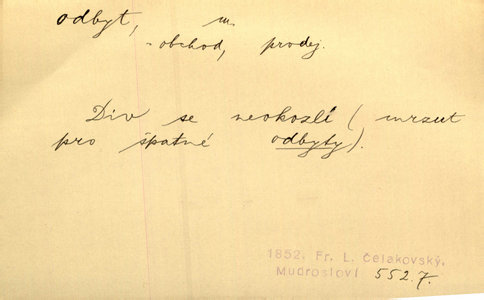 odbyt, m.
- obchod, prodej.
Div se neokozlí (mrzut
pro špatné odbyty).
1852, Fr. L. Čelakovský,
Mudrosloví 552.7.